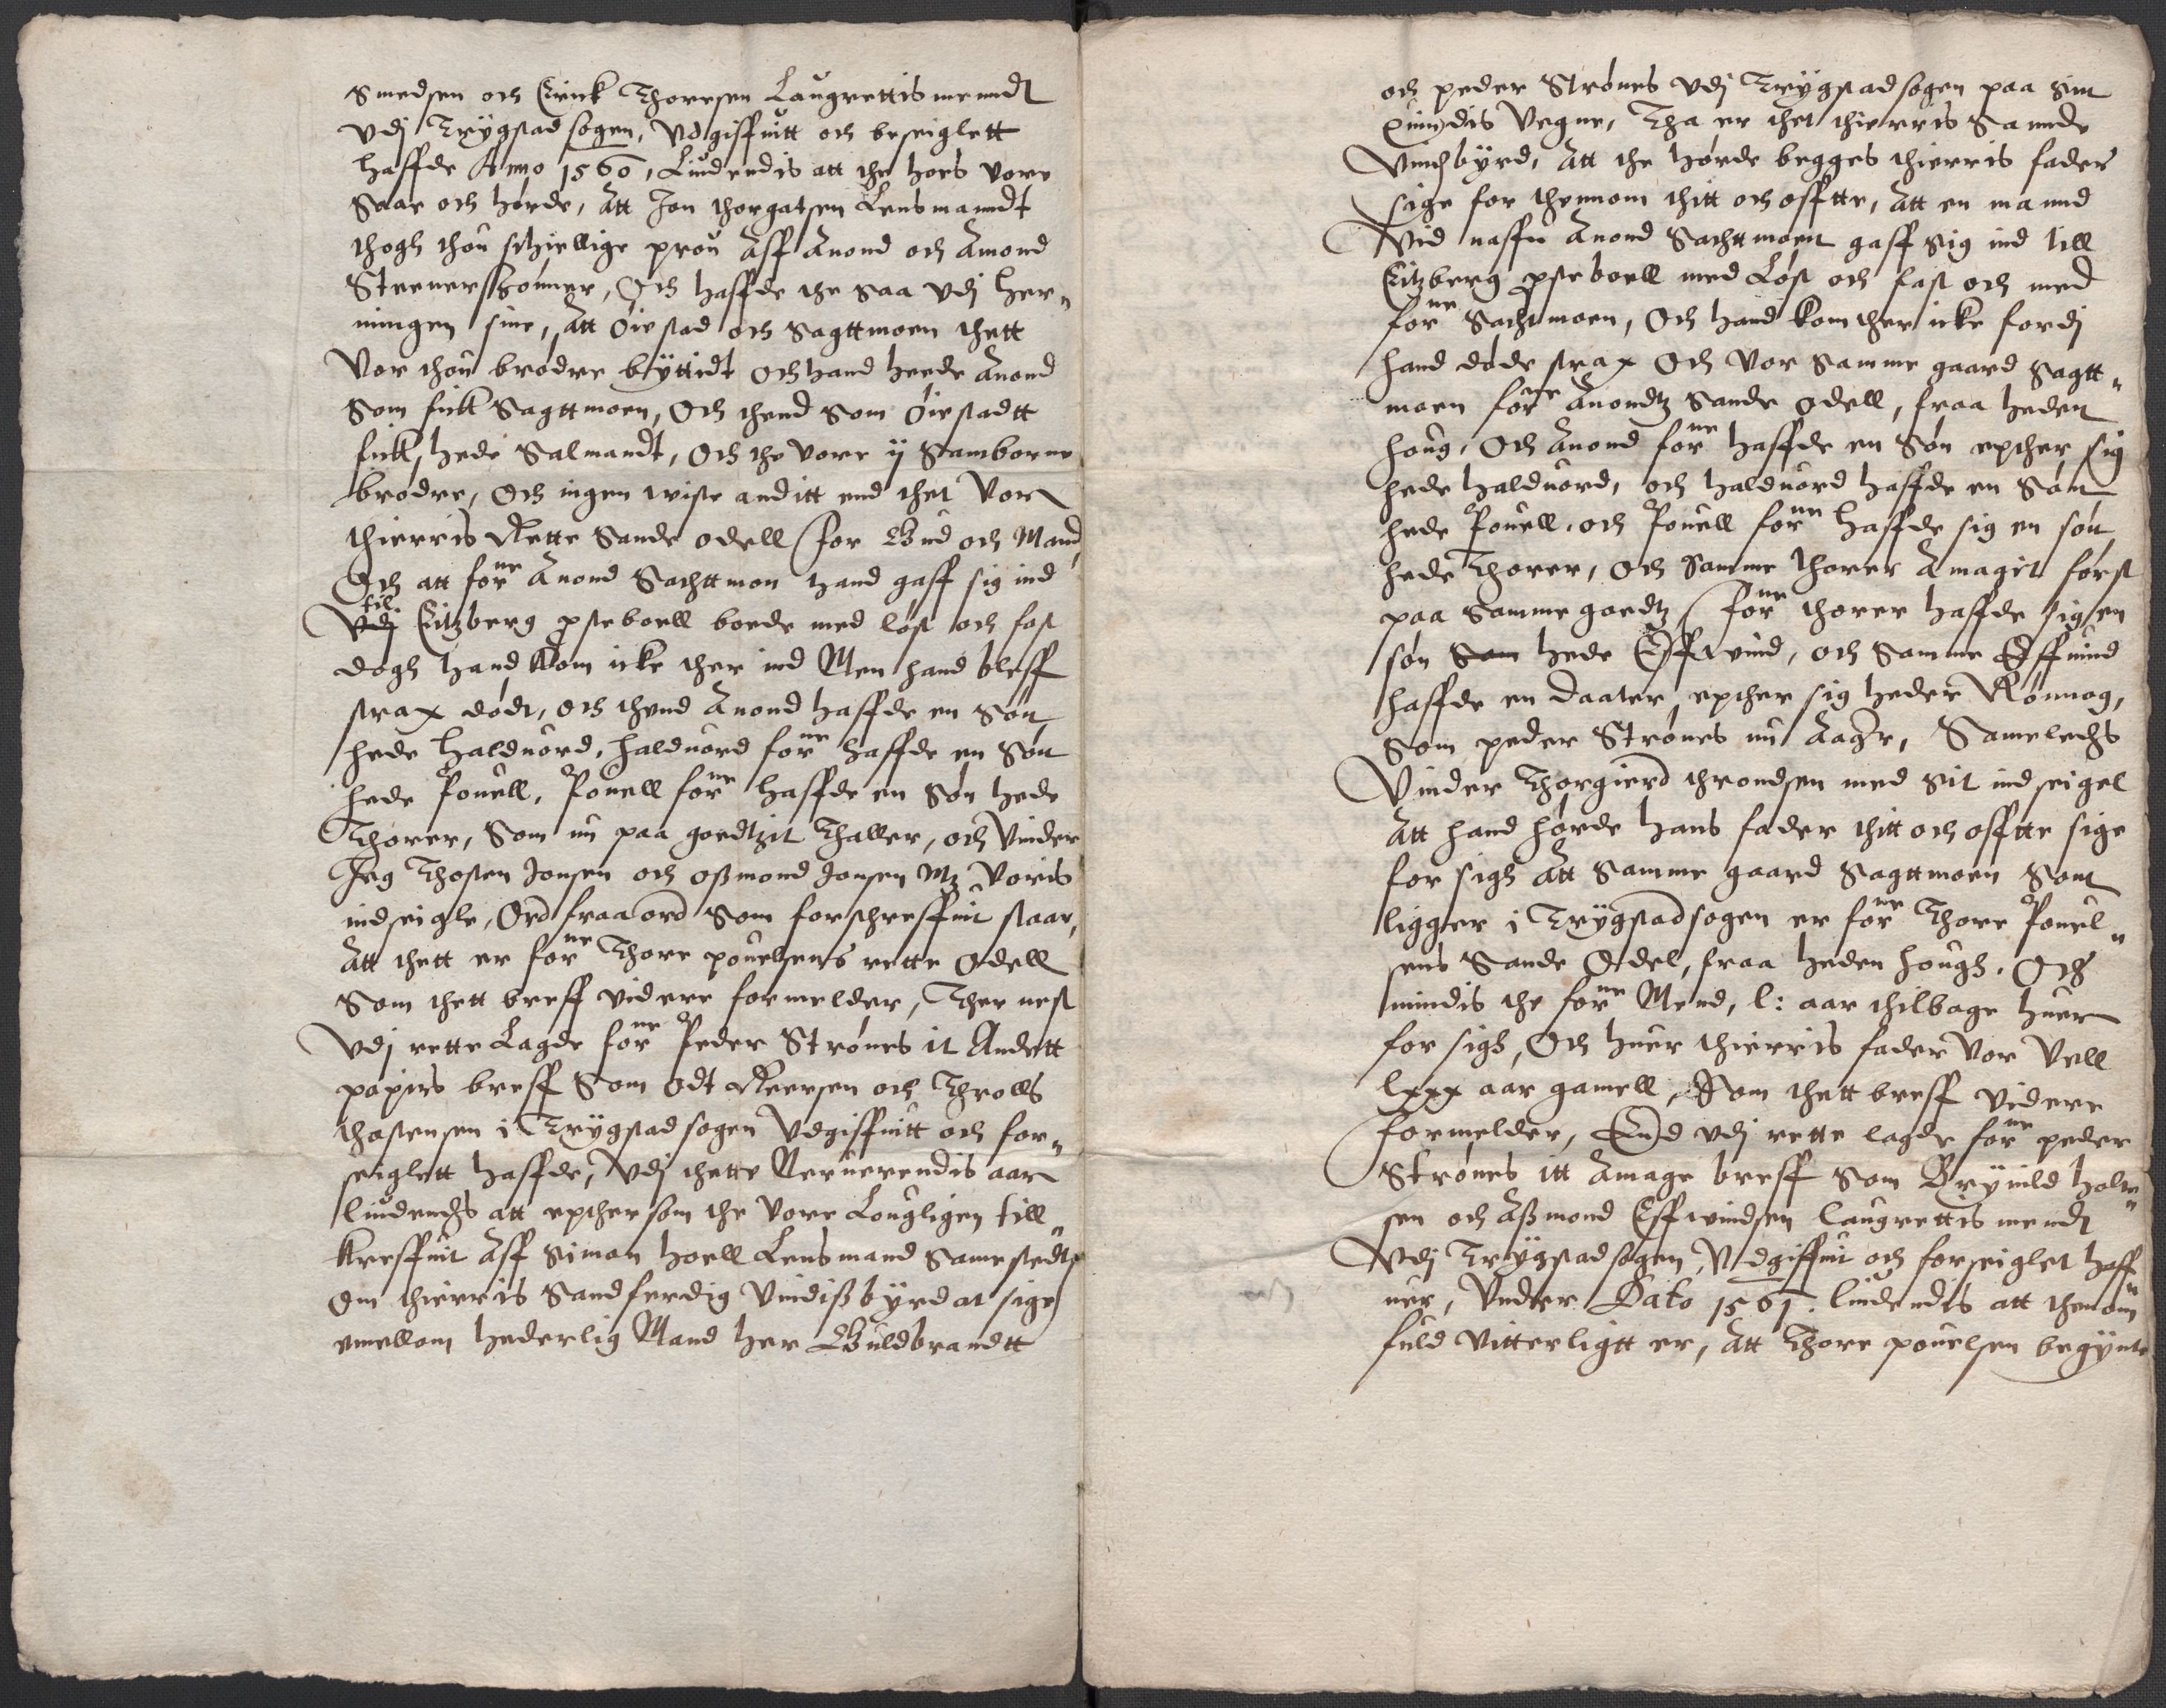 Smedsen och Erick Thoresen Laugrettismenndt
vdj Trygstad sogen, Vdgiffuitt och beseiglett
haffde Anno 1560, Liudendis att the hoes vore
Saae och hørde, Att Jon thorgalsen Lensmanndt
thogh thou schiellige prou Aff Anond och Amond
Steenerssønner, Och haffde the saa vdj her„
ningen sine, Att Øiestad och Sagttmoen thett
Vor thou brødre byttidt Och hand heede Anond
Som fick Sagttmoen, Och thend Som Øiestadtt
fick, hede Salmandt, Och the Vore ij Samborne
brødre, Och ingen wiste anditt end thet Vor
thierris Rette Sande odell for Gud och Mand,
Och att forne Anond Sachttmoen hand gaff sig ind
til
Vdj Eitzberg prsteboell boede med løst och fast
dogh hand kom icke ther ind Men hand bleff
strax dødt, Och thend Anond haffde en Søn
hede halduord, halduord forne haffde en Søn
hede Pouell, Pouell forne haffde en Søn hede
Thorer, Som nu paa goedtzit Thaller, och Vinder
Jeg Thosten Jonsen och Oßmond Jonsen Mz Voris
indseigle, Ord fraa ord Som forschreffuit staar,
Att thett er forne Thore pouelsens rette Odell
Som thett breff videre formelder, Ther nest
Vdj rette Lagde forne Peder Strønes it Andett
papirs breff Som Odt Reersen och Throlls
thostensen i Trygstad sogen Vdgiffuitt och for„
seiglett haffde, Vdj thette Neruerendis aar
liudendis att epthersom the Vore Lougligen till„
kreffuit Aff Simon hoell Lensmand Samestedtz
Om thierris Sandferdig Vindißbyrd at sige
emellom hederlig Mand her Guldbrandtt
och peder Strønes vdj Trygstadsogen paa sin
quindis Vegne, Tha er thet thierris Sannde
Vindbyrd, Att the hørde begges thierris fader
sige for thennom thitt och offtte, Att en mannd
Wid naffn Anond Sachttmoen gaff sig ind till
Eitzberg prsteboell med Løst och fast och med
forne Sachtmoen, Och hand kom ther icke fordj
hand døde strax Och Vor Samme gaard Sagtt„
moen forne Anondtz Sande odell, fraa heden
houg, Och Anond forne haffde en Søn epther sig
hede halduord, och halduord haffde en Søn
hede Pouell, och Pouell forne haffde sig en søn
hede Thorer, Och Samme Thorer Amagit først
paa Samme goedtz, forne thorer haffde sig en
søn Som hede Effwind, och Samme Effuind
haffde en daater epther sig heder Rønnog,
Som peder Strønes nu Aager, Sameledhs
Vinder Thorgierd throndsen med Sit indseigel
Att hand hørde hans fader thitt och offtte sige
for sigh Att Samme gaard Sagttmoen Som
ligger i Trygstadsogen er forne Thore Pouel„
sens Sande Odel, fraa heden hough. Och
mindis the forne Mend, l: aar thilbage huer
for sigh, Och huer thierris fader Vor Vell
lxxx aar gamell, Som thett breff videre
formelder, End vdj rette lagde forne peder
Strønes itt Amage breff Som Brynild holte„
sen och Aßmond Effwindsen laugrettis mend
Vdj Trygstadsogen, Vdgiffuit och forseiglet haff„
uer, Vnder Dato 1561. liudendis att thenom
fuld vitterligtt er, Att Thore pouelsen begynte